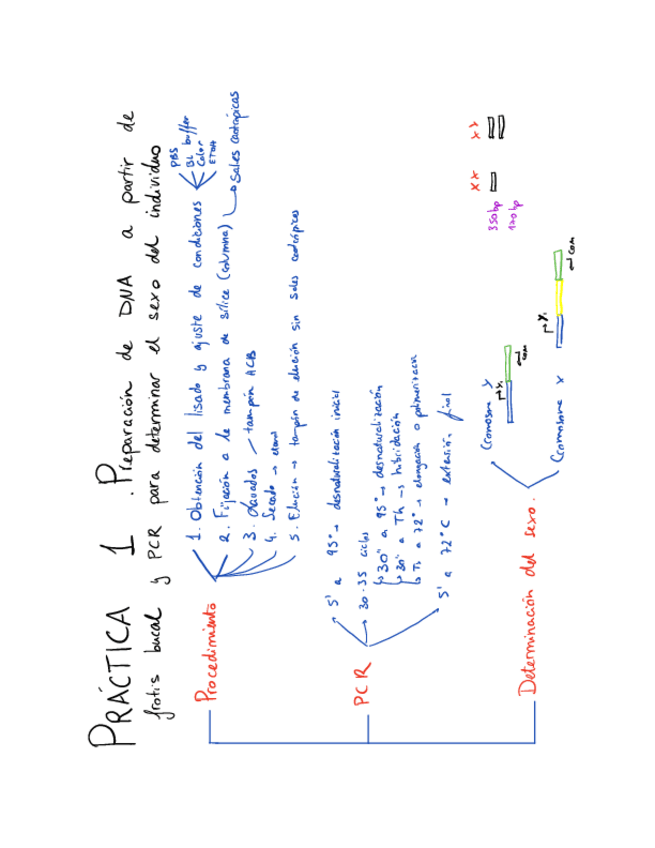 PRÁCTICA 1. Preparación de DNA a partir de
frotis bucal y PCR para determinar el sexo del individuo
Procedimiento
1. Obtención del lisado y ajuste de condiciones
PBS
BL buffer
Calor
ETOH
2. Fijación a la membrana de sílice (columna) → Sales caotrópicas
3. Lavados tampón ACB
4. Secado → etanol
5. Elución → tampón de elución sin sales caotrópicas
PCR
5' a 95° → desnaturalización inicial
30-35 ciclos
30" a 95° → desnaturalización
30" a Th → hibridación
a 72° → elongación o polimerización
5' a 72°C → extensión final
Determinación del sexo.
Cromosoma Y
Cromosoma X
350bp
120bp